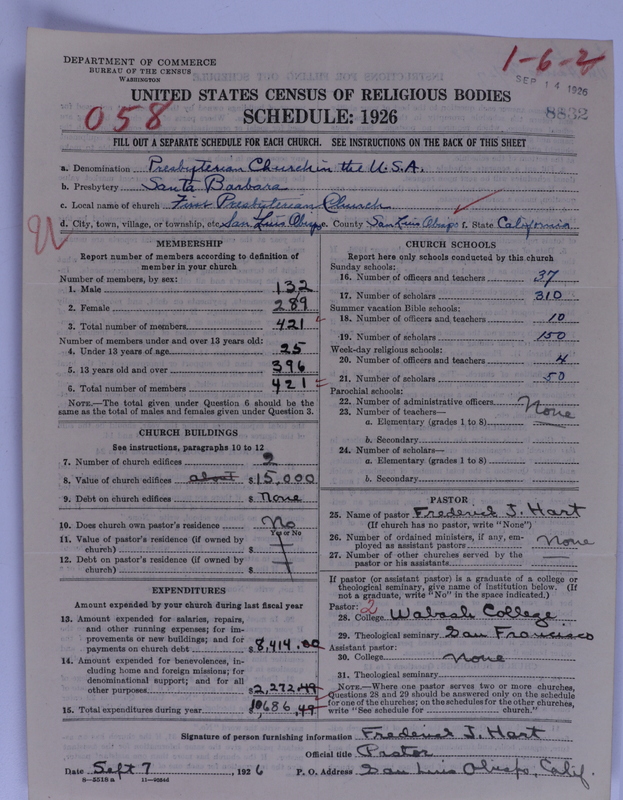 DEPARTMENT OF COMMERCE
BUREAU OF THE CENSUS
WASHINGTON
1-6-2
SEP 14 1926
8832
UNITED STATES CENSUS OF RELIGIOUS BODIES
058
SCHEDULE: 1926
FILL OUT A SEPARATE SCHEDULE FOR EACH CHURCH. SEE INSTRUCTIONS ON THE BACK OF THIS SHEET
a. Denomination Presbyterian Church in the U.S.A.
b. Presbytery Santa Barbara
c. Local name of church First Presbyterian Church
d. City, town, village, or township, etc. San Luis Obispo e. County San Luis Obispo f. State California
MEMBERSHIP
Report number of members according to definition of
member in your church
Number of members, by sex:
1. Male 132
2. Female 289
3. Total number of members 421
Number of members under and over 13 years old:
4. Under 13 years of age 25
5. 13 years old and over 396
6. Total number of members 421
NOTE.—The total given under Question 6 should be the
same as the total of males and females given under Question 3.
CHURCH BUILDINGS
See instructions, paragraphs 10 to 12
7. Number of church edifices 2
8. Value of church edifices about $15,000
9. Debt on church edifices $ None
10. Does church own pastor's residence No
Yes or No
11. Value of pastor's residence (if owned by
church) $
12. Debt on pastor's residence (if owned by
church) $
EXPENDITURES
Amount expended by your church during last fiscal year
13. Amount expended for salaries, repairs,
and other running expenses; for im-
provements or new buildings; and for
payments on church debt $8,414.00
14. Amount expended for benevolences, in-
cluding home and foreign missions; for
denominational support; and for all
other purposes $2,272.49
15. Total expenditures during year $10686.49
CHURCH SCHOOLS
Report here only schools conducted by this church
Sunday schools:
16. Number of officers and teachers 37
17. Number of scholars 310
Summer vacation Bible schools:
18. Number of officers and teachers 10
19. Number of scholars 150
Week-day religious schools:
20. Number of officers and teachers 4
21. Number of scholars 50
Parochial schools:
22. Number of administrative officers None
23. Number of teachers—
a. Elementary (grades 1 to 8)
b. Secondary
24. Number of scholars—
a. Elementary (grades 1 to 8)
b. Secondary
PASTOR
25. Name of pastor Frederick J. Hart
(If church has no pastor, write "None")
26. Number of ordained ministers, if any, em-
ployed as assistant pastors None
27. Number of other churches served by the
pastor or his assistants
If pastor (or assistant pastor) is a graduate of a college or
theological seminary, give name of institution below. (If
not a graduate, write "No" in the space indicated.)
Pastor: 2
28. College Wabash College
29. Theological seminary San Francisco
Assistant pastor:
30. College None
31. Theological seminary
NOTE.—Where one pastor serves two or more churches,
Questions 28 and 29 should be answered only on the schedule
for one of the churches; on the schedules for the other churches,
write "See schedule for church."
Signature of person furnishing information Frederick J. Hart
Official title Pastor
Date Sept 7, 1926 P. O. Address San Luis Obispo, Calif.